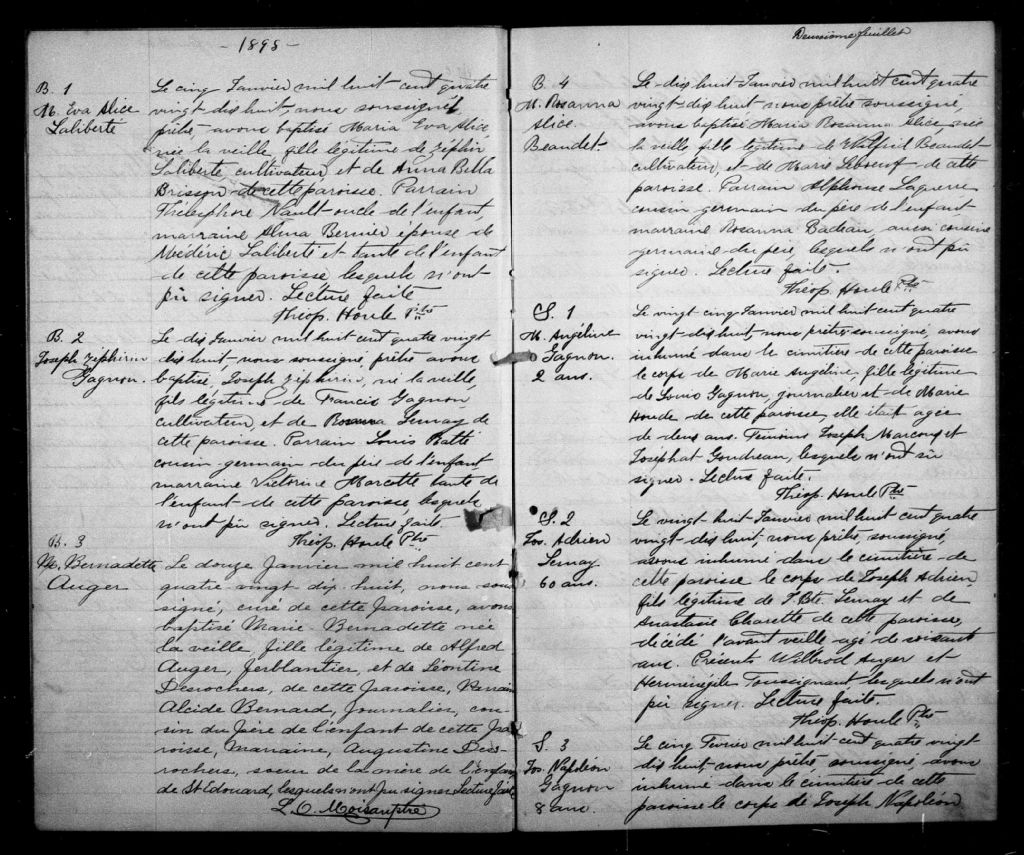 - 1898 -
B. 1
M. Eva Alice
Laliberte
Le cinq Janvier mil huit cent quatre
vingt-dis huit, nous soussigné
prêtre, avons baptisé Maria Eva Alice,
née la veille, fille légitime de Zéphir
Laliberte, cultivateur et de Anna Bella
Brisson de cette paroisse. Parrain
Thélesphore Nault oncle de l'enfant,
marraine Alma Bernier épouse de
Médéric Laliberté et tante de l'enfant
de cette paroisse lesquels n'ont
pu signer. Lecture faite
Théop. Houle Ptre
B. 2
Joseph Zéphirin
Gagnon.
Le dis Janvier mil huit cent quatre vingt
dis huit nous soussigné, prêtre avons
baptisé, Joseph Zéphirin, né la veille,
fils légitime de Francis Gagnon
cultivateur et de Rosanna Lemay de
cette paroisse. Parrain Louis
cousin germain du père de l'enfant
marraine Victorine Marcotte tante de
l'enfant de cette paroisse, lesquels
n'ont pu signer. Lecture faite
Théop. Houle Ptre
B. 3
M. Bernadette
Auger
Le douze Janvier mil huit cent
quatre vingt dix huit, nous sous
signé, curé de cette paroisse, avons
baptisé Marie-Bernadette née
la veille, fille légitime de Alfred
Auger, ferblantier, et de Léontine
Desrochers, de cette paroisse, Parrain
Alcide Bernard, Journalier, cou-
sin du père de l'enfant de cette pa
roisse, Marraine, Augustine Des-
rochers, soeur de la mère de l'enfant
de St Edouard, lesquels n'ont pu signer. Lecture faite
L. O. Moisan ptre
Deuxsième feuillet
B. 4
M. Rosanna
Alice
Beaudet
Le dis huit Janvier mil huit cent quatre
vingt-dis huit, nous prêtre soussigné,
avons baptisé Marie Rosanna Alice, née
la veille fille légitime de Wilfrid Beaudet
cultivateur, et de Marie Leboeuf de cette
paroisse. Parrain Alphonse Laquerre
cousin germain du père de l'enfant
marraine Rosanna aussi cousine
germaine du père, lesquels n'ont pu
signer. Lecture faite.
Théop. Houle Ptre
S. 1
M. Angéline
Gagnon.
2 ans.
Le vingt cinq Janvier mil huit cent quatre
vingt-dis huit, nous prêtre soussigné, avons
inhumé dans le cimitière de cette paroisse
le corps de Marie Angéline, fille légitime
de Louis Gagnon, journalier et de Marie
Houde de cette paroisse, elle était agée
de deux ans. Témoins Joseph Marcoux et
Josaphat Gaudreau, lesquels n'ont su
signer. Lecture faite.
Théop. Houle Ptre
S. 2
Jos. Adrien
Lemay
60 ans.
Le vingt-huit Janvier mil huit cent quatre
vingt-dis huit, nous prêtre, soussigné,
avons inhumé dans le cimitière de
cette paroisse le corps de Joseph Adrien
fils légitime de J. Bte. Lemay et de
Anastasie Charette de cette paroisse,
décédé l'avant veille agé de soixant
ans. Présents Willbrod Auger et
Herménégile Toussignant lesquels n'ont
pu signer. Lecture faite.
Théop. Houle Ptre
S. 3
Jos. Napoléon
Gagnon
8 ans.
Le cinq Fevrier mil huit cent quatre vingt
dis huit nous prêtre soussigné, avons
inhumé dans le cimitière de cette
paroisse le corps de Joseph Napoléon